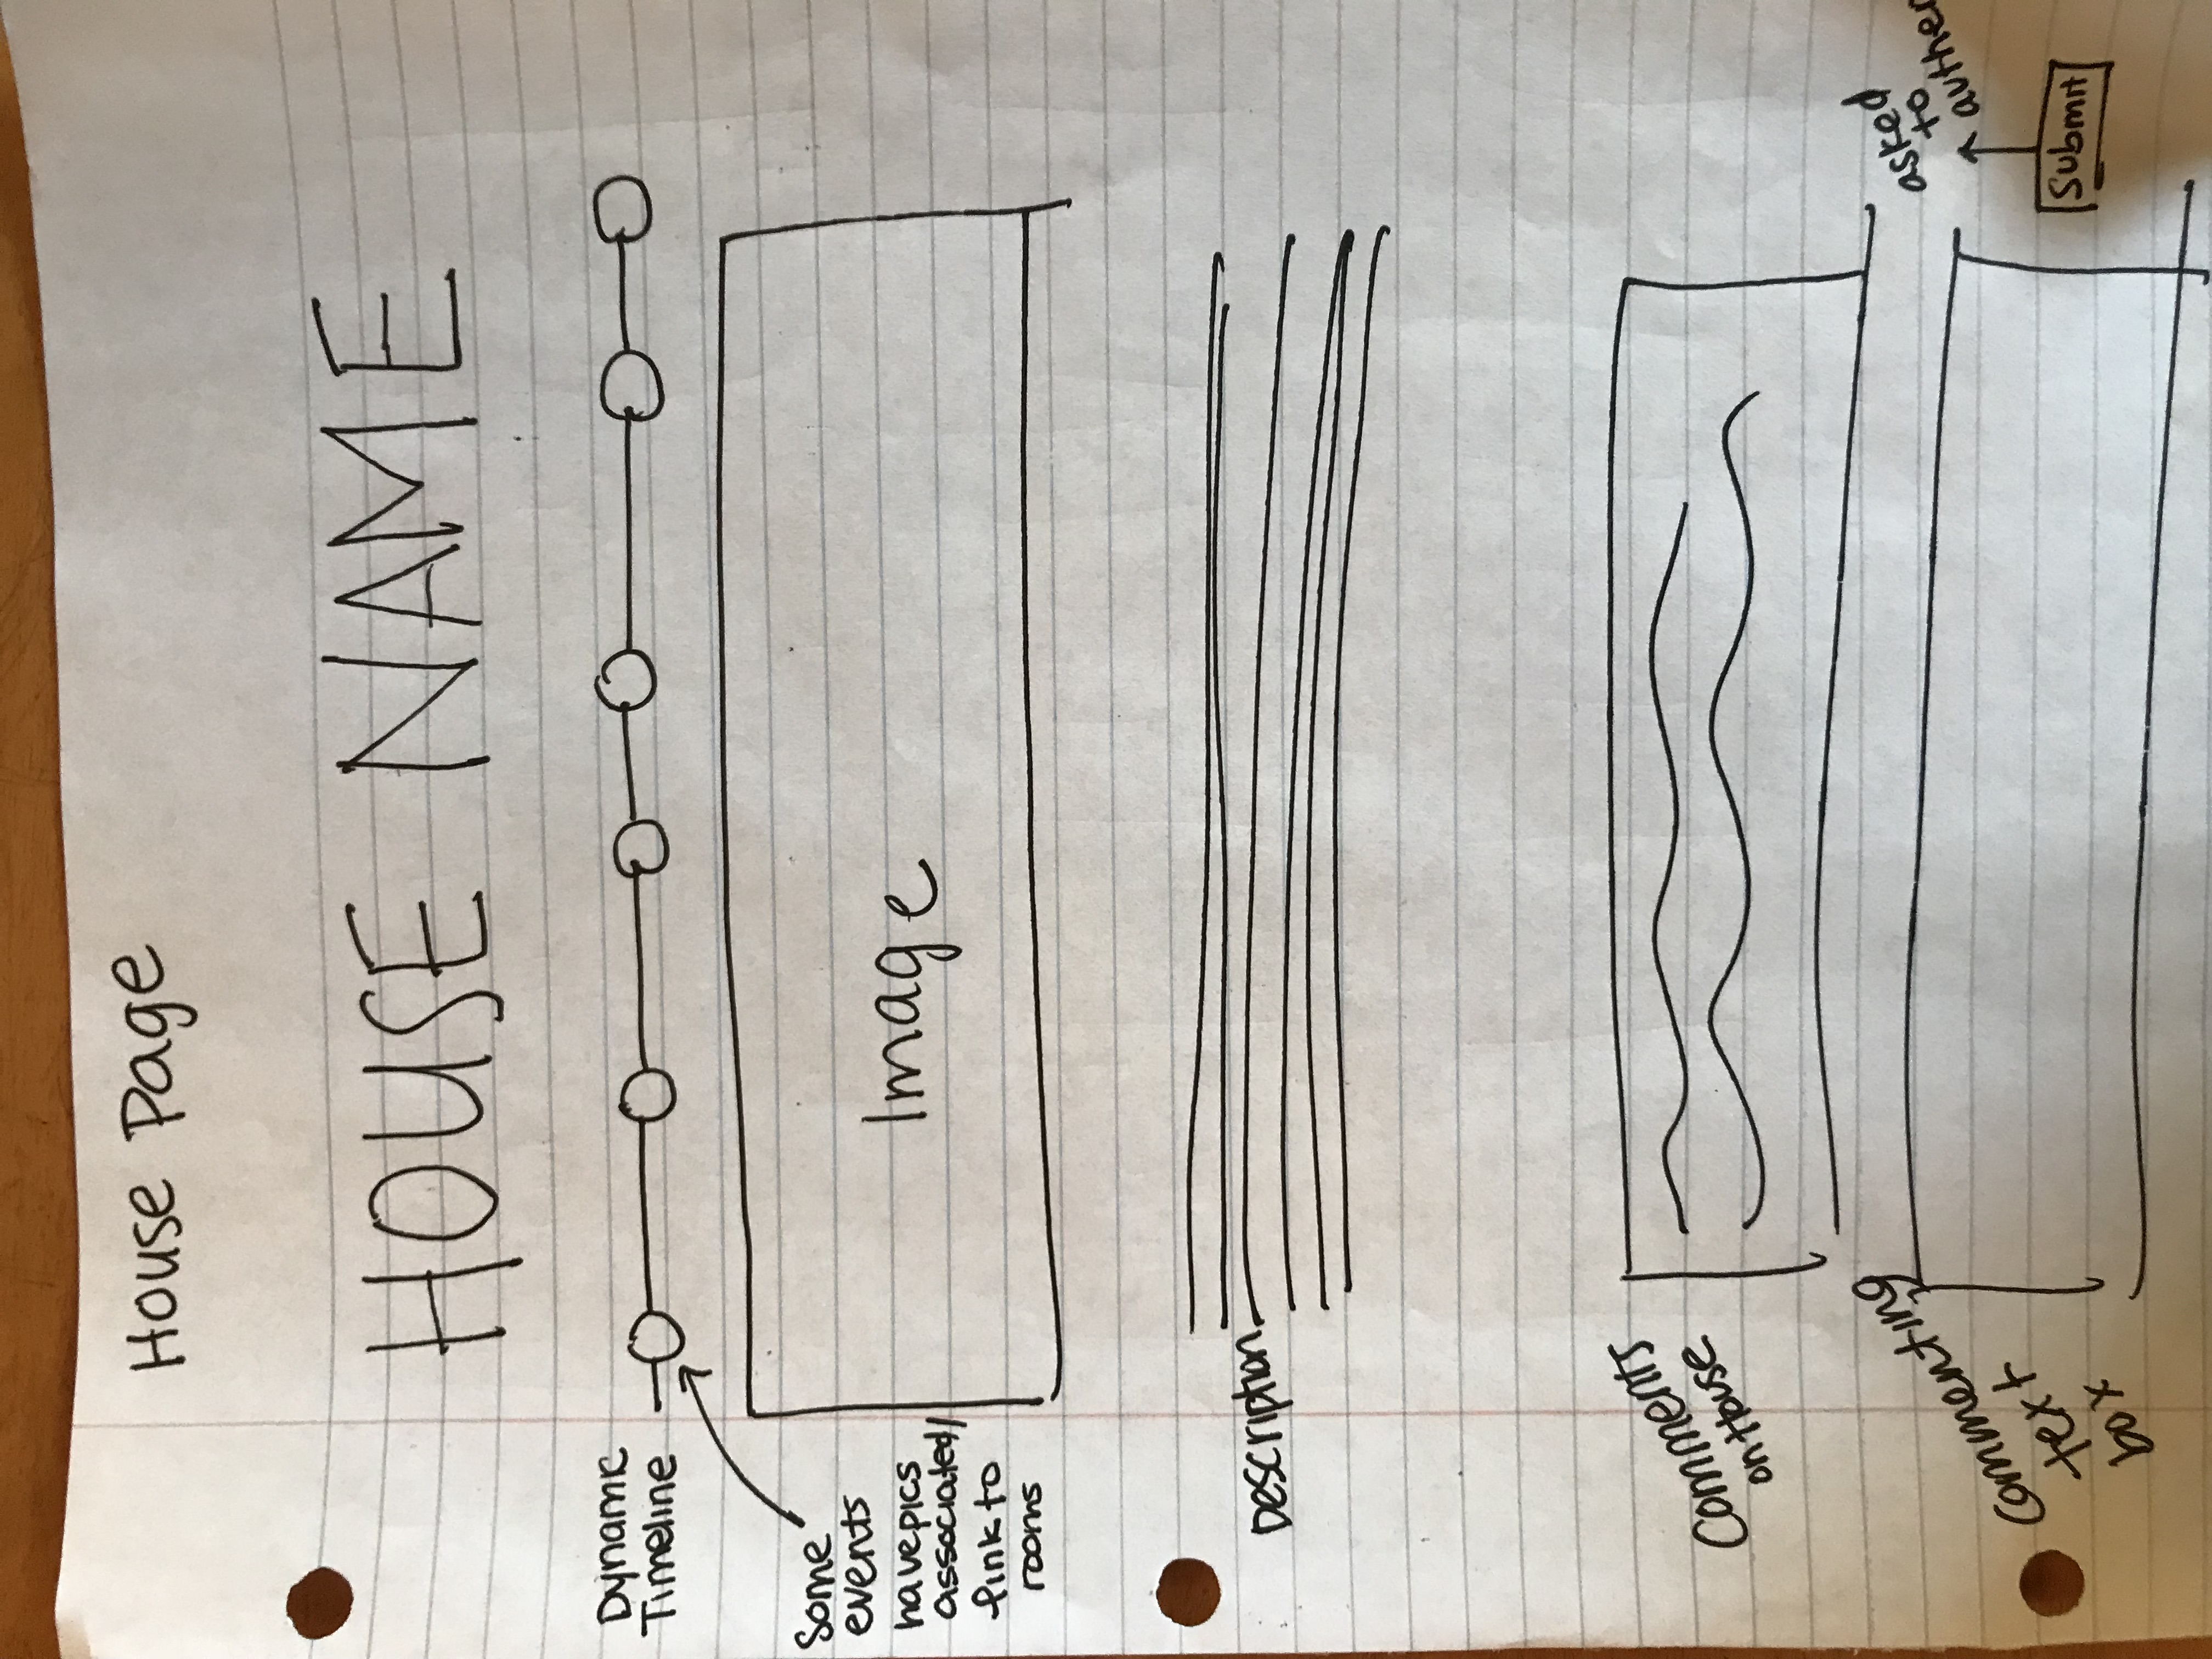 House Page
HOUSE NAME
Dynamic
Timeline
Some
events
have pics
associated/
link to
rooms
Image
Description
Comments
on House
Commenting
text
box
asked
to
Submit